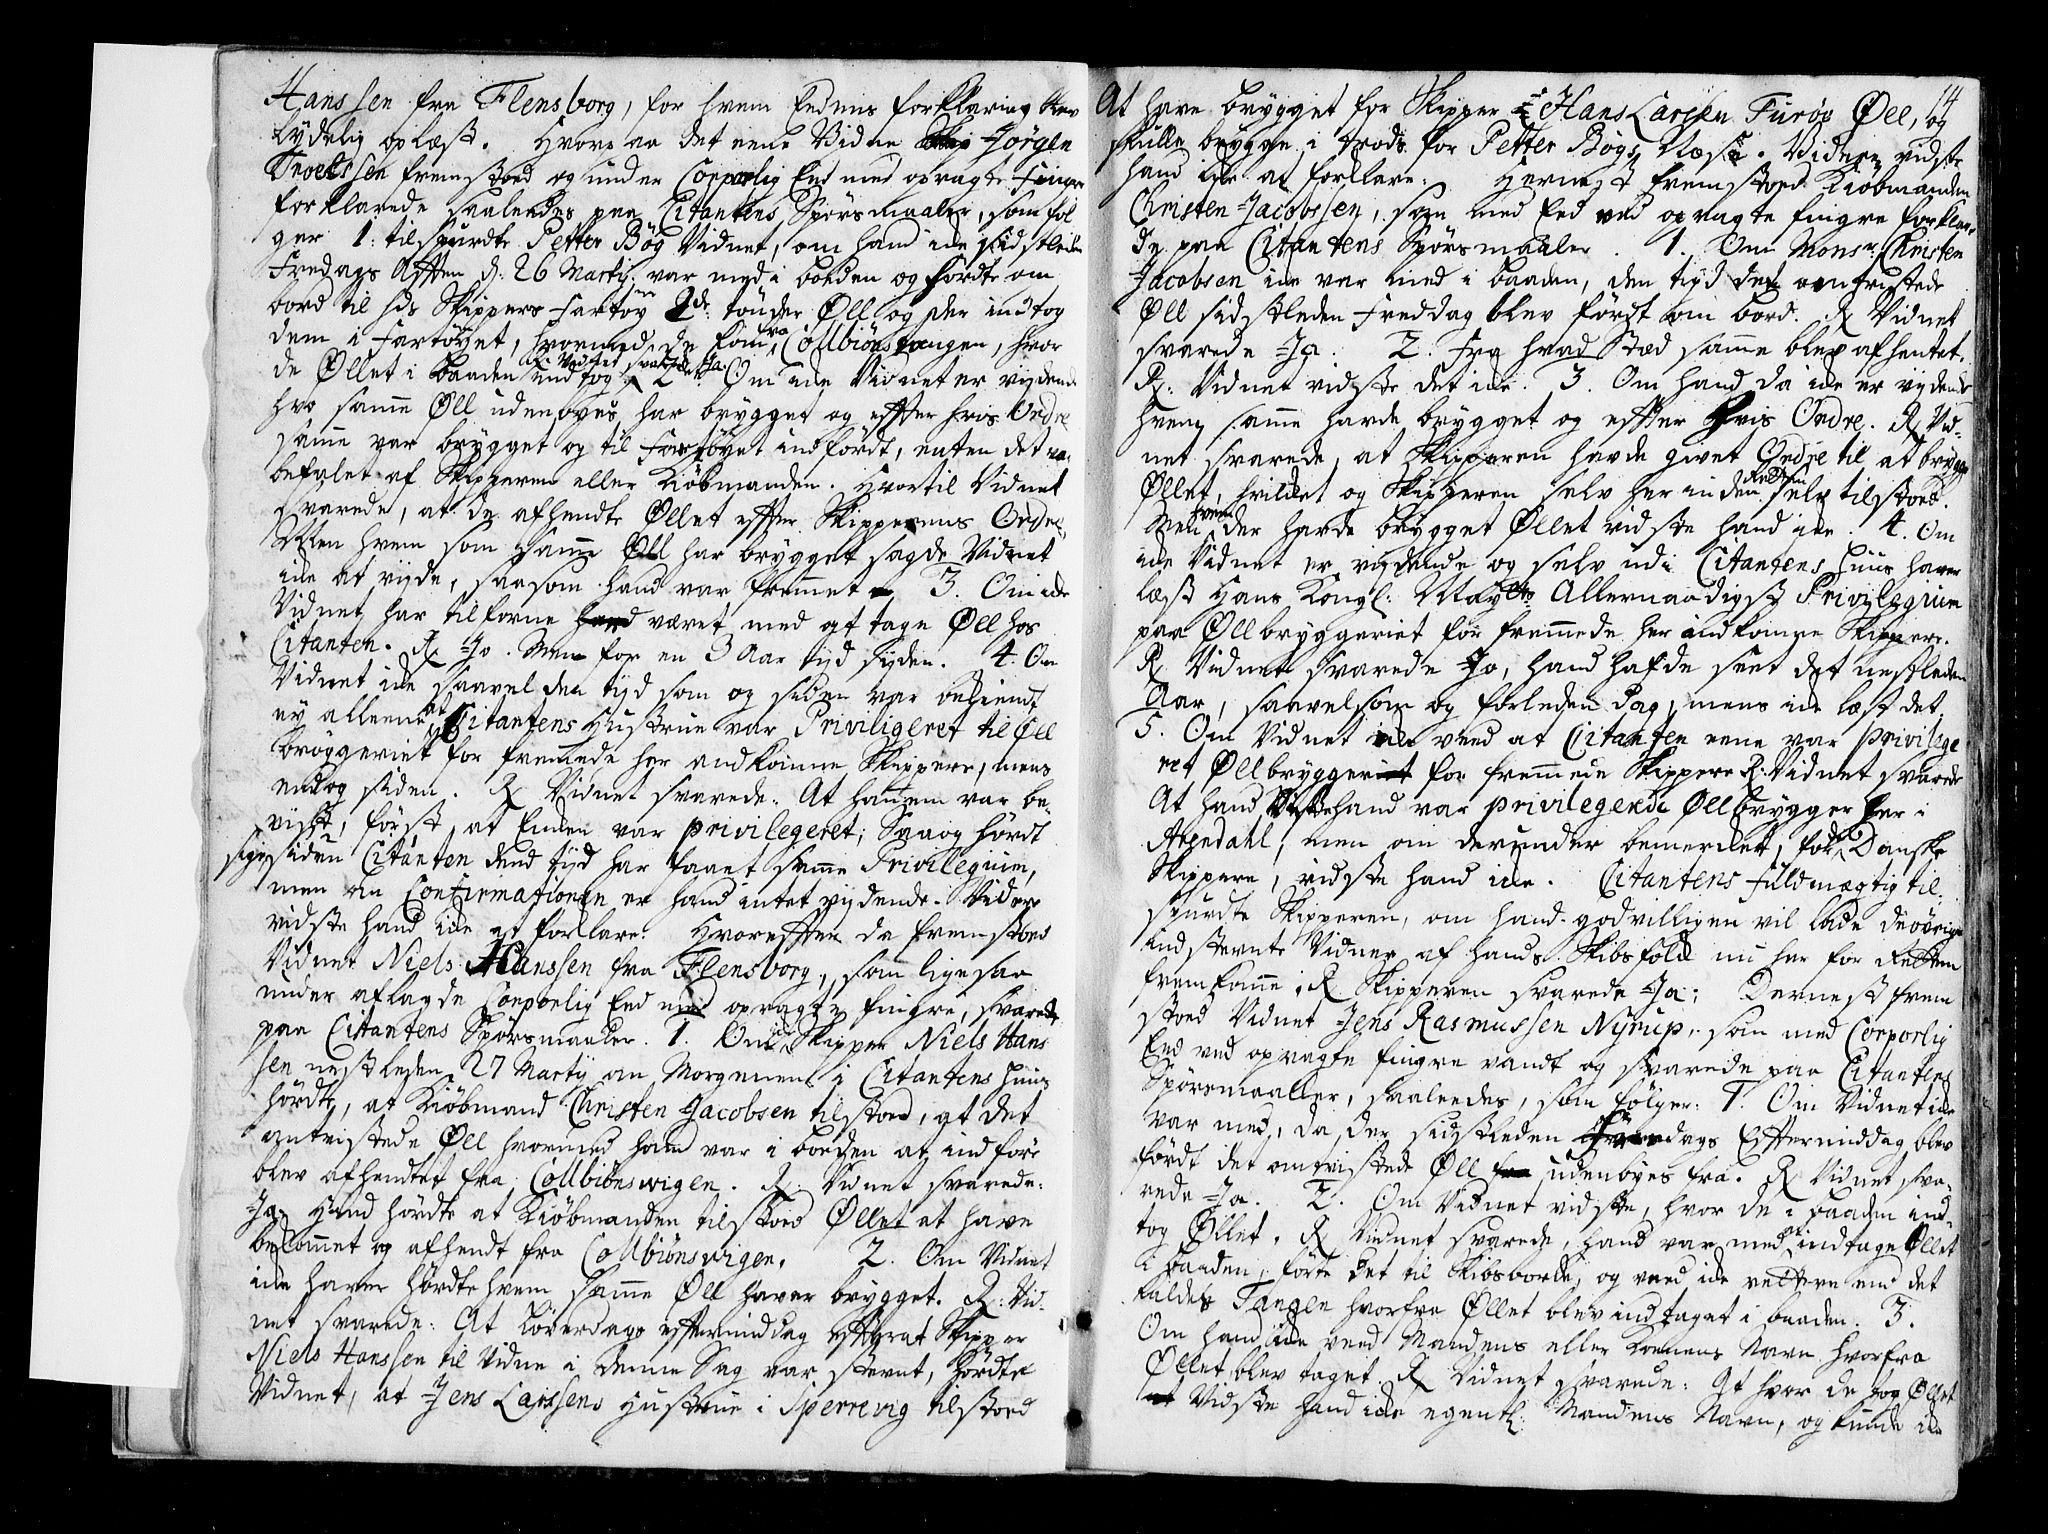 Hanssen fra Flensborg, for hvem Eedens forklaring blev
tydelig oplæst. Hvorpaa det eene Vidne Jörgen
Troelssen fremstoed og under Corporlig Eed med opragte Finger
forklarede saaleedes paa Citantens Spörsmaaler, som föl
ger 1: tilspurdte Petter Bög Vidnet, om hand icke sidstleden
Fredags Afften d: 26 Martij var med i baaden og fördte om
bord til hds Skippers Fartöy 2de tönder Öll og der indtog
dem i Fartöyet, hvormed de kom fra Colbiönstangen, hvor
de Öllet i baaden indtog Vidnet svarede Ja. 2 Om icke Vidnet er vidende
hvo samme Öll udenbyes har brygget og effter hvis Ordre
samme var brygget og til Fartöyet indfördt, enten det va
befalet af Skipperen eller Kiöbmanden. Hvortil Vidnet
svarede, at de afhendte Öllet effter Skipperens Ordre,
Men hvem som samme Öll har brygget sagde Vidnet
icke at vijde, saasom hand var fremmet. 3. Om icke
Vidnet har tilforne været med at tage Öll hos
Citanten. R Jo. Men for en 3 Aar tijd sijden. 4. Om
Vidnet icke saavel den tijd som og siden var bekiendt
ey alleene at Citantens Hustrue var Priviligeret til Öll
bröggeriet for fremmede her ankomne Skippere, mens
endog siden. R Vidnet svarede: At handem var be
vist, först at Enken var privilegeret; Saa og hördt
sige siden Citanten dend tijd har faaet samme Privilegium,
men om Confirmationen er hand intet vijdende. Videre
vidste hand icke at forklare: Hvoreffter da fremstoed
Vidnet Niels Hanssen fra Flensborg, som ligesaa
under aflagde Corporlig Eed med opragte fingre, svarede
paa Citantens Spörsmaaler. 1. Om icke Skipper Niels Hans
sen nestleden 27 Martij om Morgenen i Citantens Huus
hördte, at Kiöbmand Christen Jacobsen tilstoed, at det
omtvistede Öll hvormed hand var i baaden at indföre
blev afhendtet fra Colbiönswigen. R. Vidnet svarede:
Ja. Hand hördte at Kiöbmanden tilstoed Öllet at have
bekommet og afhendt fra Colbiönswigen. 2. Om Vidnet
icke haver hördt hvem samme Öll haver brygget. R: Vid-
net svarede: At Löverdags efftermiddag effterat Skipper
Niels Hanssen til Vidne i denne Sag var stevnt, hördte
Vidnet, at Jens Larssens Hustrue i Sperrevig tilstoed
14
At have brygget for Skipper Hans Larsen Furöe Öll, og
skulle brygge i trods for Petter Bögs Næse. Videre vidste
hand icke at forklare: Hernest fremstoed Kiöbmanden
Christen Jacobssen, som med Eed ved opragte fingre forklare
de paa Citantens Spörsmaaler. 1. Om Monsr: Christen
Jacobsen icke var med i baaden, den tijd det omtvistede
Öll sidstleden Freddag blev fördt om bord. R Vidnet
svarede Ja. 2. Fra hvad Stæd samme blev afhentet.
R: Vidnet vidste det icke. 3. Om hand da icke er vijdende
hvem samme hafde brygget og effter hvis Ordre. R Vid-
net svarede, at Skipperen havde givet Ordre til at brygge
Öllet, hvilket og Skipperen selv her inden Retten selv tilstoed.
Men hvem der hafde brygget Öllet vidste hand icke. 4. Om
icke Vidnet er vijdende og selv udi Citantens Huus haver
læst Hans Kongl: Mayts Allernaadigst Privilegium
paa Öllbryggeriet for fremmede her indkomne Skippere.
R Vidnet svarede Jo, hand hafde seet det nestleden
Aar, saavelsom og forleden dag, mens icke læst det
5. Om Vidnet icke veed at Citanten eene var privilege
ret Öllbrygger for fremmede Skippere R: Vidnet svarede
At hand Viste hand var privilegerede Öllbrygger her i
Arendahl, men om derunder bemerckett, for de Danske
Skippere, vidste hand icke. Citantens Fuldmægtig til
spurdte Skipperen, om hand godvilligen vil lade de övrige
indstevnte Vidner af hands Skibsfolck nu her for Retten
fremkomme. R Skipperen svarede Ja: Dernest frem
stoed Vidnet Jens Rasmussen Nyrup, som med Corporlig
Eed ved opragte fingre vandt og svarede paa Citantens
Spörsmaaller, saaleedes, som fölger: 1. Om Vidnet icke
var med, da der sidstleden Fredags Effterm iddag blev
fördt det omtvistede Öll udenbyes fra. R Vidnet sva-
rede Ja. 2. Om Vidnet vidste, hvor de i baaden ind-
tog Öllet. R Vidnet svarede, hand var med at indtage Öllet
i baaden, förte det til Skibsborde, og veed icke rettere end det
kaldes Tangen hvorfra Öllet blev indtaget i baaden. 3.
Om hand icke veed Mandens eller Konens Navn hvorfra
Öllet blev taget. R Vidnet svarede: At hvor de tog Öllet
Vidste hand icke egentl: Mandens Navn, og kunde icke